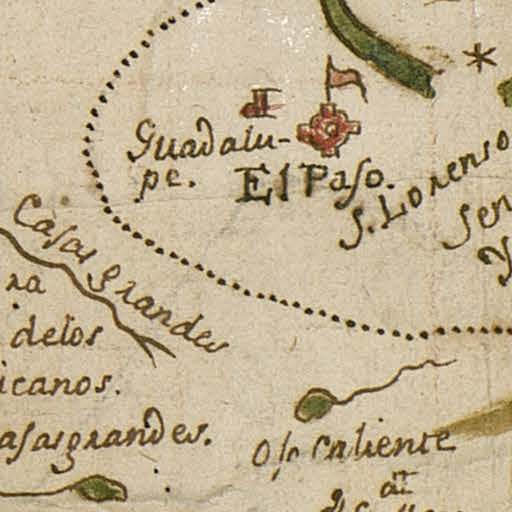 Guadalu-
pe.
El Paso.
S. Lorenso
Sen
Casas grandes
ra
delos
icanos.
asasgrandes.
Ojo Caliente